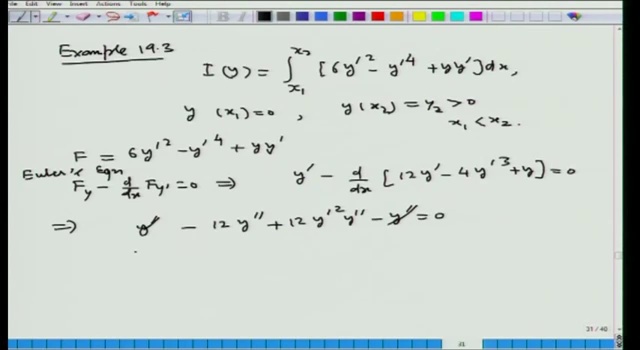 Edit View Insert Actions Tools Help
Example 19.3
I(y) = ∫_{x₁}^{x₂} [6y'² - y'⁴ + yy'] dx,
y(x₁) = 0, y(x₂) = y₂ > 0
x₁ < x₂.
F = 6y'² - y'⁴ + yy'
Euler's Eqn
F_y - d/dx F_y' = 0 ⇒ y' - d/dx [12y' - 4y'³ + y] = 0
⇒ y' - 12y'' + 12y'²y'' - y' = 0
31 / 40
31